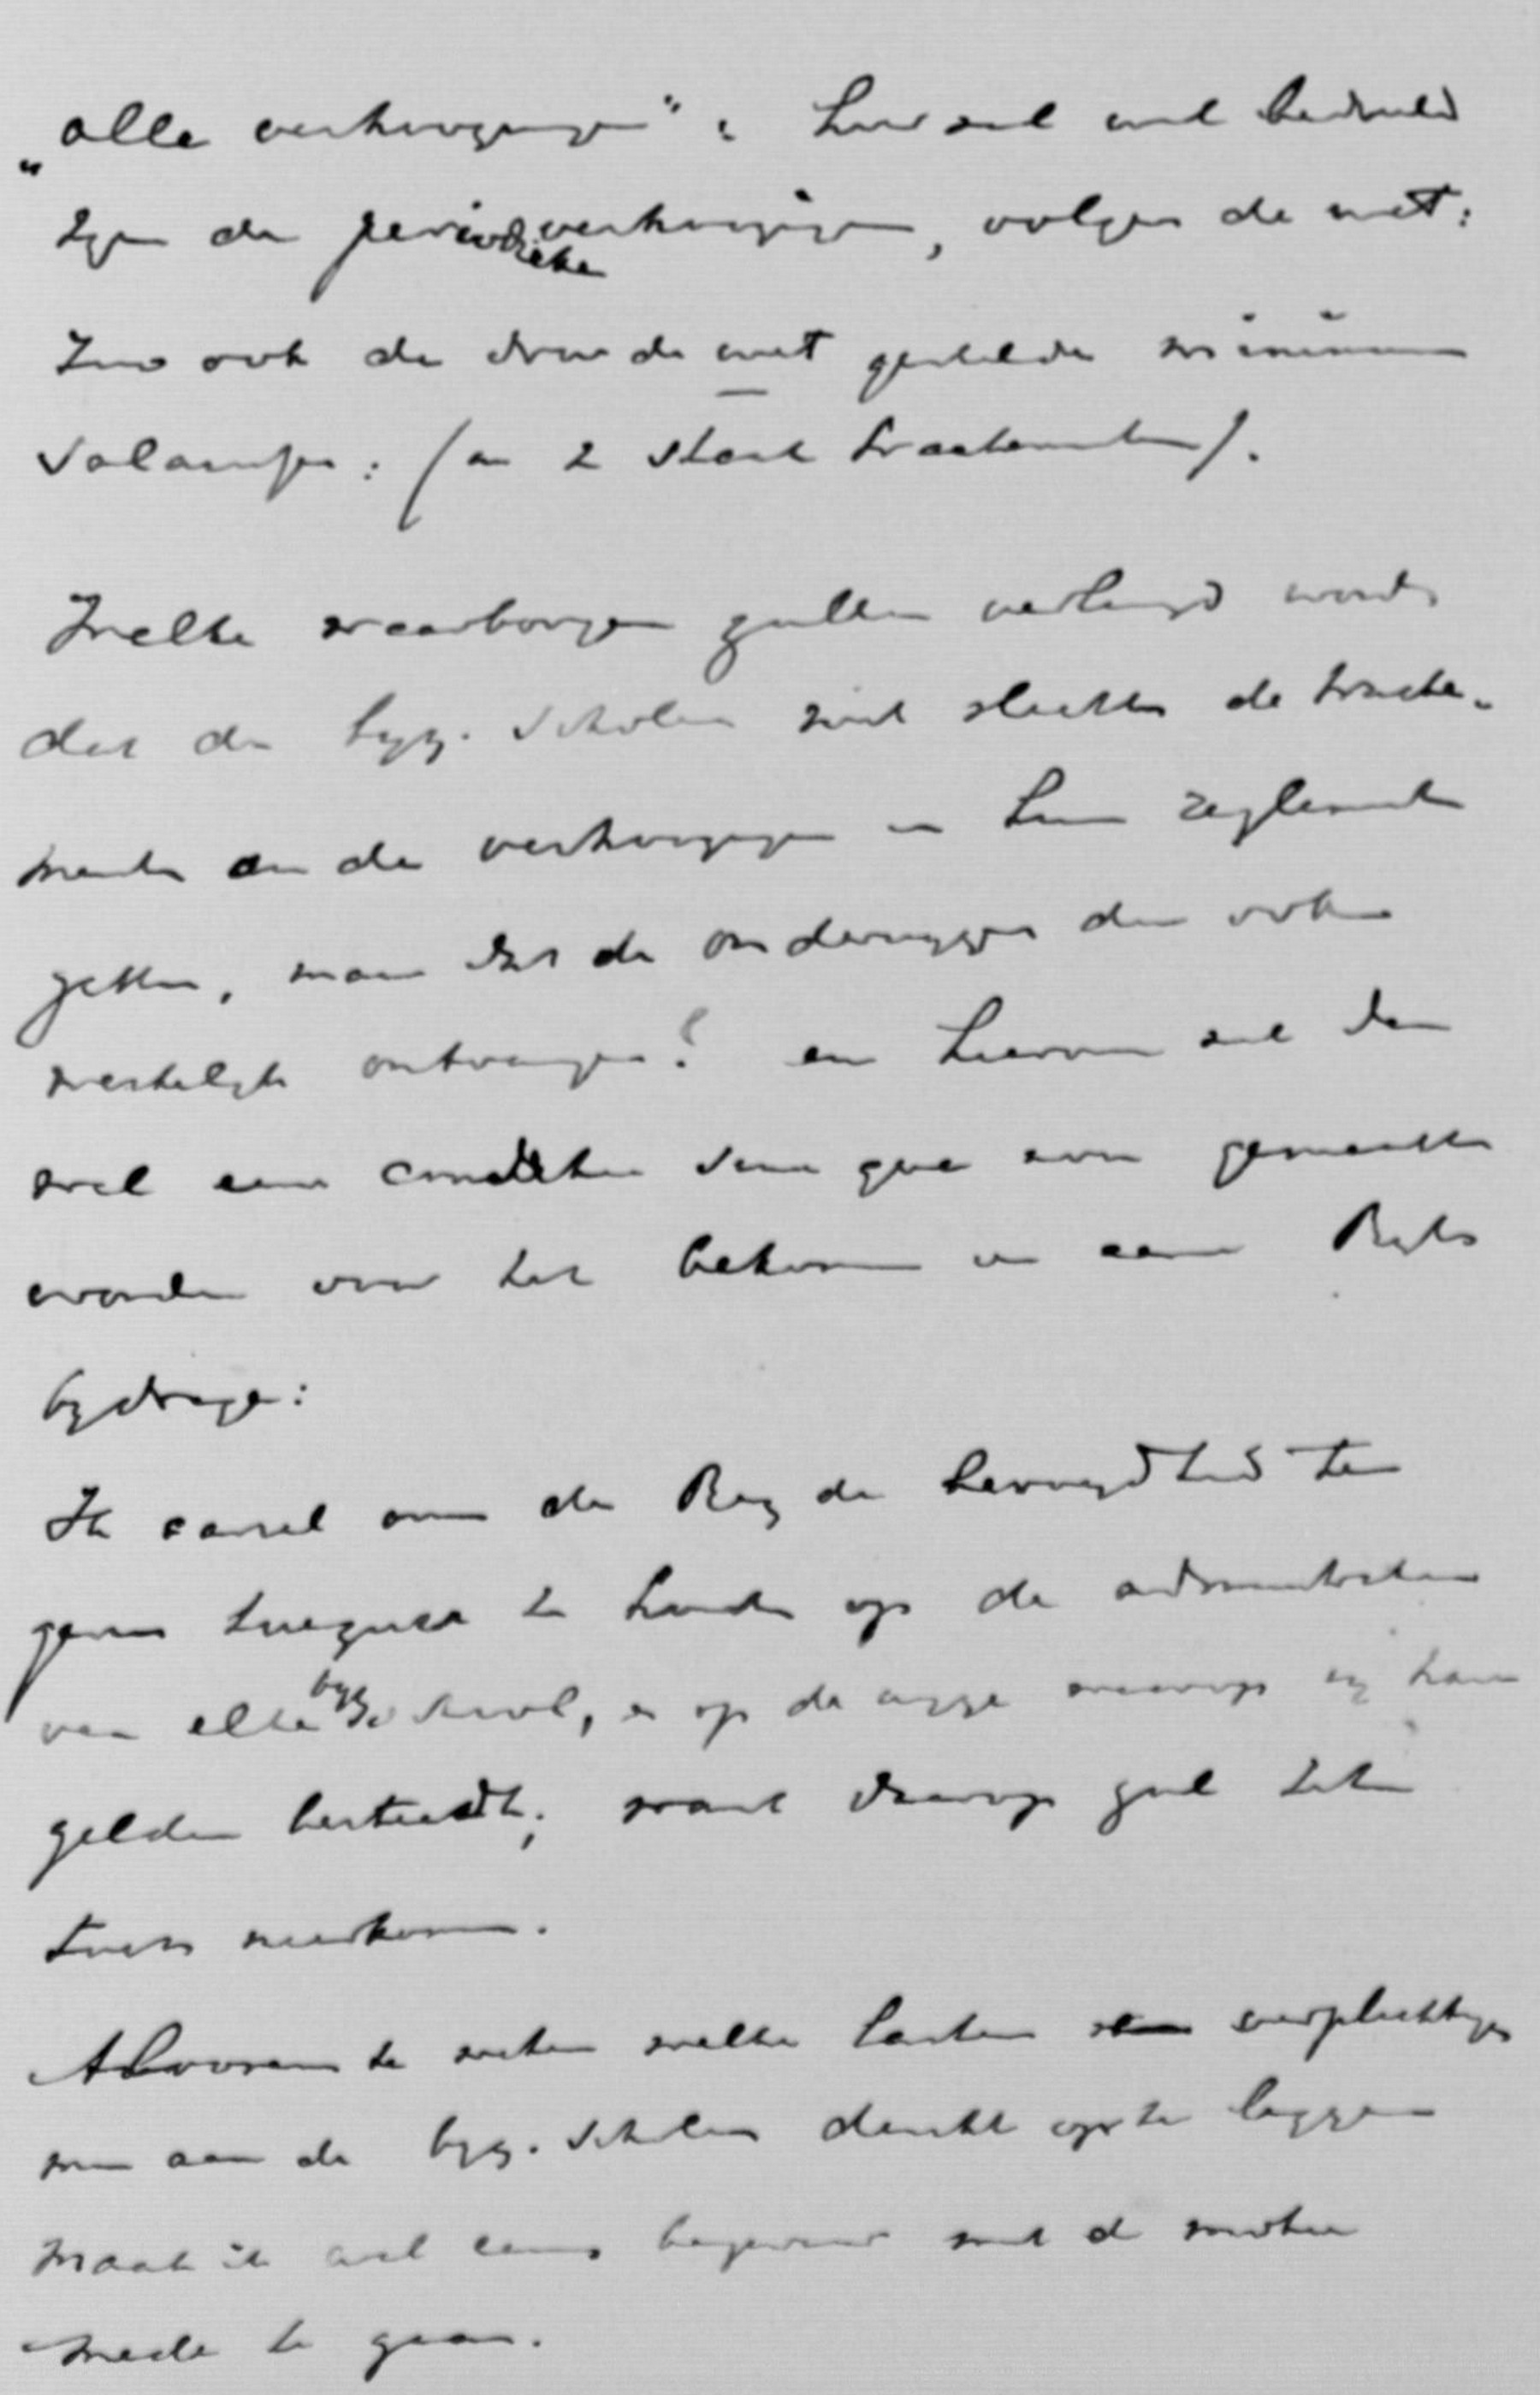 „alle verhoogingen": hier zal wel bedoeld
zyn de periodieke verhoogingen, volgens de wet:
Zoo ook de door de wet gestelde minimum
Salarissen: (en 2 staat tractementen).
Welke waarborgen zullen verlangd worden
dat de byz. scholen niet slechts de tracte-
menten en de verhoogingen in hun reglement
zetten, maar dat de onderwyzers die ook
werkelyk ontvangen? en hiervan zal dan
wel een conditio sine qua non gemaakt
worden voor het bekomen van eene Ryks
bydrage:
Ik aarzel om de Reg de bevoegdheid te
geven toezicht te houden op de administratie
van elke byz. school, en op de wyze waarop zy hare
gelden besteedt; want daarop zal het
toch neerkomen.
Alvorens te weten welke lasten verplichtingen
men aan de byz. scholen denkt op te leggen
maak ik wel eenig bezwaar met de motie
mede te gaan.